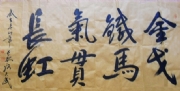 金戈
鐵馬
氣貫
長虹